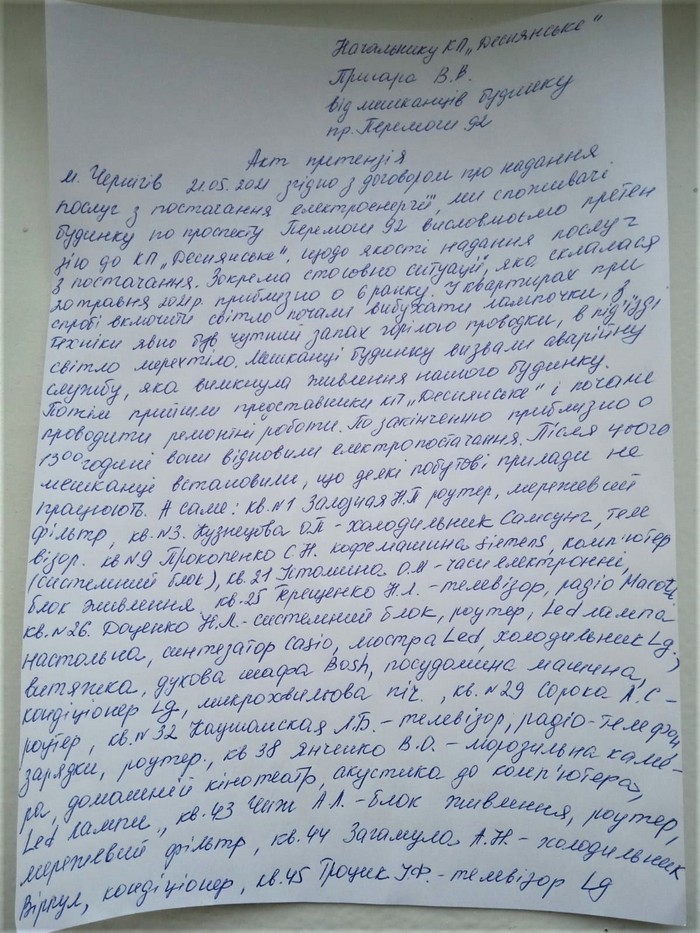 Начальнику КП „Деснянське"
Пригара В.В.
від мешканців будинку
пр. Перемоги 92
Акт претензія
м. Чернігів 21.05.2021 згідно з договором про надання
послуг з постачання електроенергії, ми споживачі
будинку по проспекту Перемоги 92 висловлюємо претен
зію до КП „Деснянське", щодо якості надання послуг
з постачання. Зокрема стосовно ситуації, яка склалася
20 травня 2021р. приблизно о 6 ранку. У квартирах при
спробі включити світло почали вибухати лампочки, з
техніки явно був чутний запах горілою проводки, в під'їзді
світло мерехтіло. Мешканці будинку визвали аварійну
службу, яка вимкнула живлення нашого будинку.
Потім прийшли представники КП „Деснянське" і почали
проводити ремонтні роботи. По закінченню приблизно о
13⁰⁰ годині вони відновили електропостачання. Після цього
мешканці встановили, що деякі побутові прилади не
працюють. А саме: кв.№1 Залозная Н.П роутер, мережевий
фільтр, кв.№3. Кузнецова О.П - холодильник Самсунг, теле
візор. кв №9 Прокопенко С.Н. кофемашина Siemens, комп'ютер
(системний блок), кв.21 Істомина О.М - часи електронні,
блок живлення. кв.25 Терещенко Н.Л. - телевізор, радіо
кв.№26. Доценко Н.Л.- системний блок, роутер, Led лампа
настольна, синтезатор Casio, люстра Led, холодильник Lg.,
витяжка, духова шафа Bosh, посудомина машина,
кондіціонер Lg, микрохвильова піч., кв.№29 Сорока А.С -
роутер, кв.№32 Каушанская Л.Б. - телевізор, радіо-телефон
зарядки, роутер., кв 38 Янченко В.О. - морозильна каме-
ра, домашній кінотеатр, акустика до комп'ютера,
Led лампи., кв.43 Чиж А.Л. - блок живлення, роутер,
мережевий фільтр, кв.44 Загамула А.Н. - холодильник
Вірпул, кондіціонер, кв.45 Троцик У.Ф. - телевізор Lg